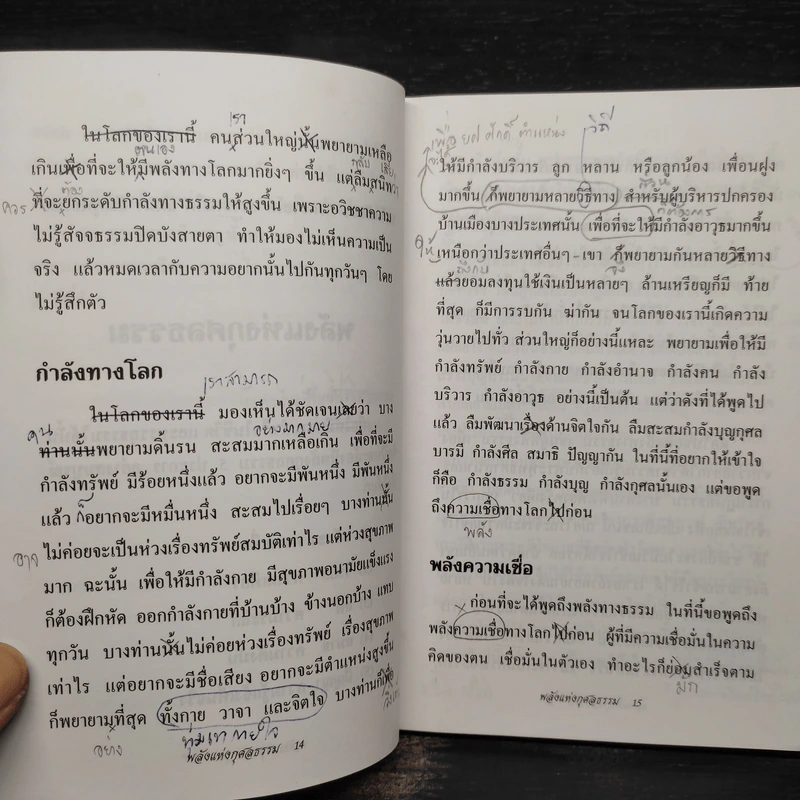 ในโลกของเรานี้ คนส่วนใหญ่นั้นพยายามเหลือ
เกินเพื่อที่จะให้มีพลังทางโลกมากยิ่งๆ ขึ้น แต่ลืมสนิทว่า
ที่จะยกระดับกำลังทางธรรมให้สูงขึ้น เพราะอวิชชาความ
ไม่รู้สัจจธรรมปิดบังสายตา ทำให้มองไม่เห็นความเป็น
จริง แล้วหมดเวลากับความอยากนั้นไปกันทุกวันๆ โดย
ไม่รู้สึกตัว
เรา
ตนเอง
กลับ
ควร
ต้อง
กำลังทางโลก
เราสามารถ
ในโลกของเรานี้ มองเห็นได้ชัดเจนเลยว่า บาง
คน
อย่างมากมาย
ท่านนั้นพยายามดิ้นรน สะสมมากเหลือเกิน เพื่อที่จะมี
กำลังทรัพย์ มีร้อยหนึ่งแล้ว อยากจะมีพันหนึ่ง มีพันหนึ่ง
แล้ว ก็อยากจะมีหมื่นหนึ่ง สะสมไปเรื่อยๆ บางท่านนั้น
ไม่ค่อยจะเป็นห่วงเรื่องทรัพย์สมบัติเท่าไร แต่ห่วงสุขภาพ
มาก ฉะนั้น เพื่อให้มีกำลังกาย มีสุขภาพอนามัยแข็งแรง
ก็ต้องฝึกหัด ออกกำลังกายที่บ้านบ้าง ข้างนอกบ้าง แทบ
ทุกวัน บางท่านนั้นไม่ค่อยห่วงเรื่องทรัพย์ เรื่องสุขภาพ
เท่าไร แต่อยากจะมีชื่อเสียง อยากจะมีตำแหน่งสูงขึ้น
ก็พยายามที่สุด ทั้งกาย วาจา และจิตใจ บางท่านก็เพื่อ
อย่าง
ทุ่มเท กายใจ
พลังแห่งกุศลธรรม 14
เพื่อ ยศ ศักดิ์ ตำแหน่ง
วิถี
ให้มีกำลังบริวาร ลูก หลาน หรือลูกน้อง เพื่อนฝูง
มากขึ้น ก็พยายามหลายวิธีทาง สำหรับผู้บริหารปกครอง
บ้านเมืองบางประเทศนั้น เพื่อที่จะให้มีกำลังอาวุธมากขึ้น
ให้
เหนือกว่าประเทศอื่นๆ เขา ก็พยายามกันหลายวิธีทาง
แล้วยอมลงทุนใช้เงินเป็นหลายๆ ล้านเหรียญก็มี ท้าย
ที่สุด ก็มีการรบกัน ฆ่ากัน จนโลกของเรานี้เกิดความ
วุ่นวายไปทั่ว ส่วนใหญ่ก็อย่างนี้แหละ พยายามเพื่อให้มี
กำลังทรัพย์ กำลังกาย กำลังอำนาจ กำลังคน กำลัง
บริวาร กำลังอาวุธ อย่างนี้เป็นต้น แต่ว่าดังที่ได้พูดไป
แล้ว ลืมพัฒนาเรื่องด้านจิตใจกัน ลืมสะสมกำลังบุญกุศล
บารมี กำลังศีล สมาธิ ปัญญากัน ในที่นี้ที่อยากให้เข้าใจ
ก็คือ กำลังธรรม กำลังบุญ กำลังกุศลนั้นเอง แต่ขอพูด
ถึงความเชื่อทางโลกไปก่อน
พลัง
พลังความเชื่อ
ก่อนที่จะได้พูดถึงพลังทางธรรม ในที่นี้ขอพูดถึง
พลังความเชื่อทางโลกไปก่อน ผู้ที่มีความเชื่อมั่นในความ
คิดของตน เชื่อมั่นในตัวเอง ทำอะไรก็ย่อมสำเร็จตาม
มัก
พลังแห่งกุศลธรรม 15